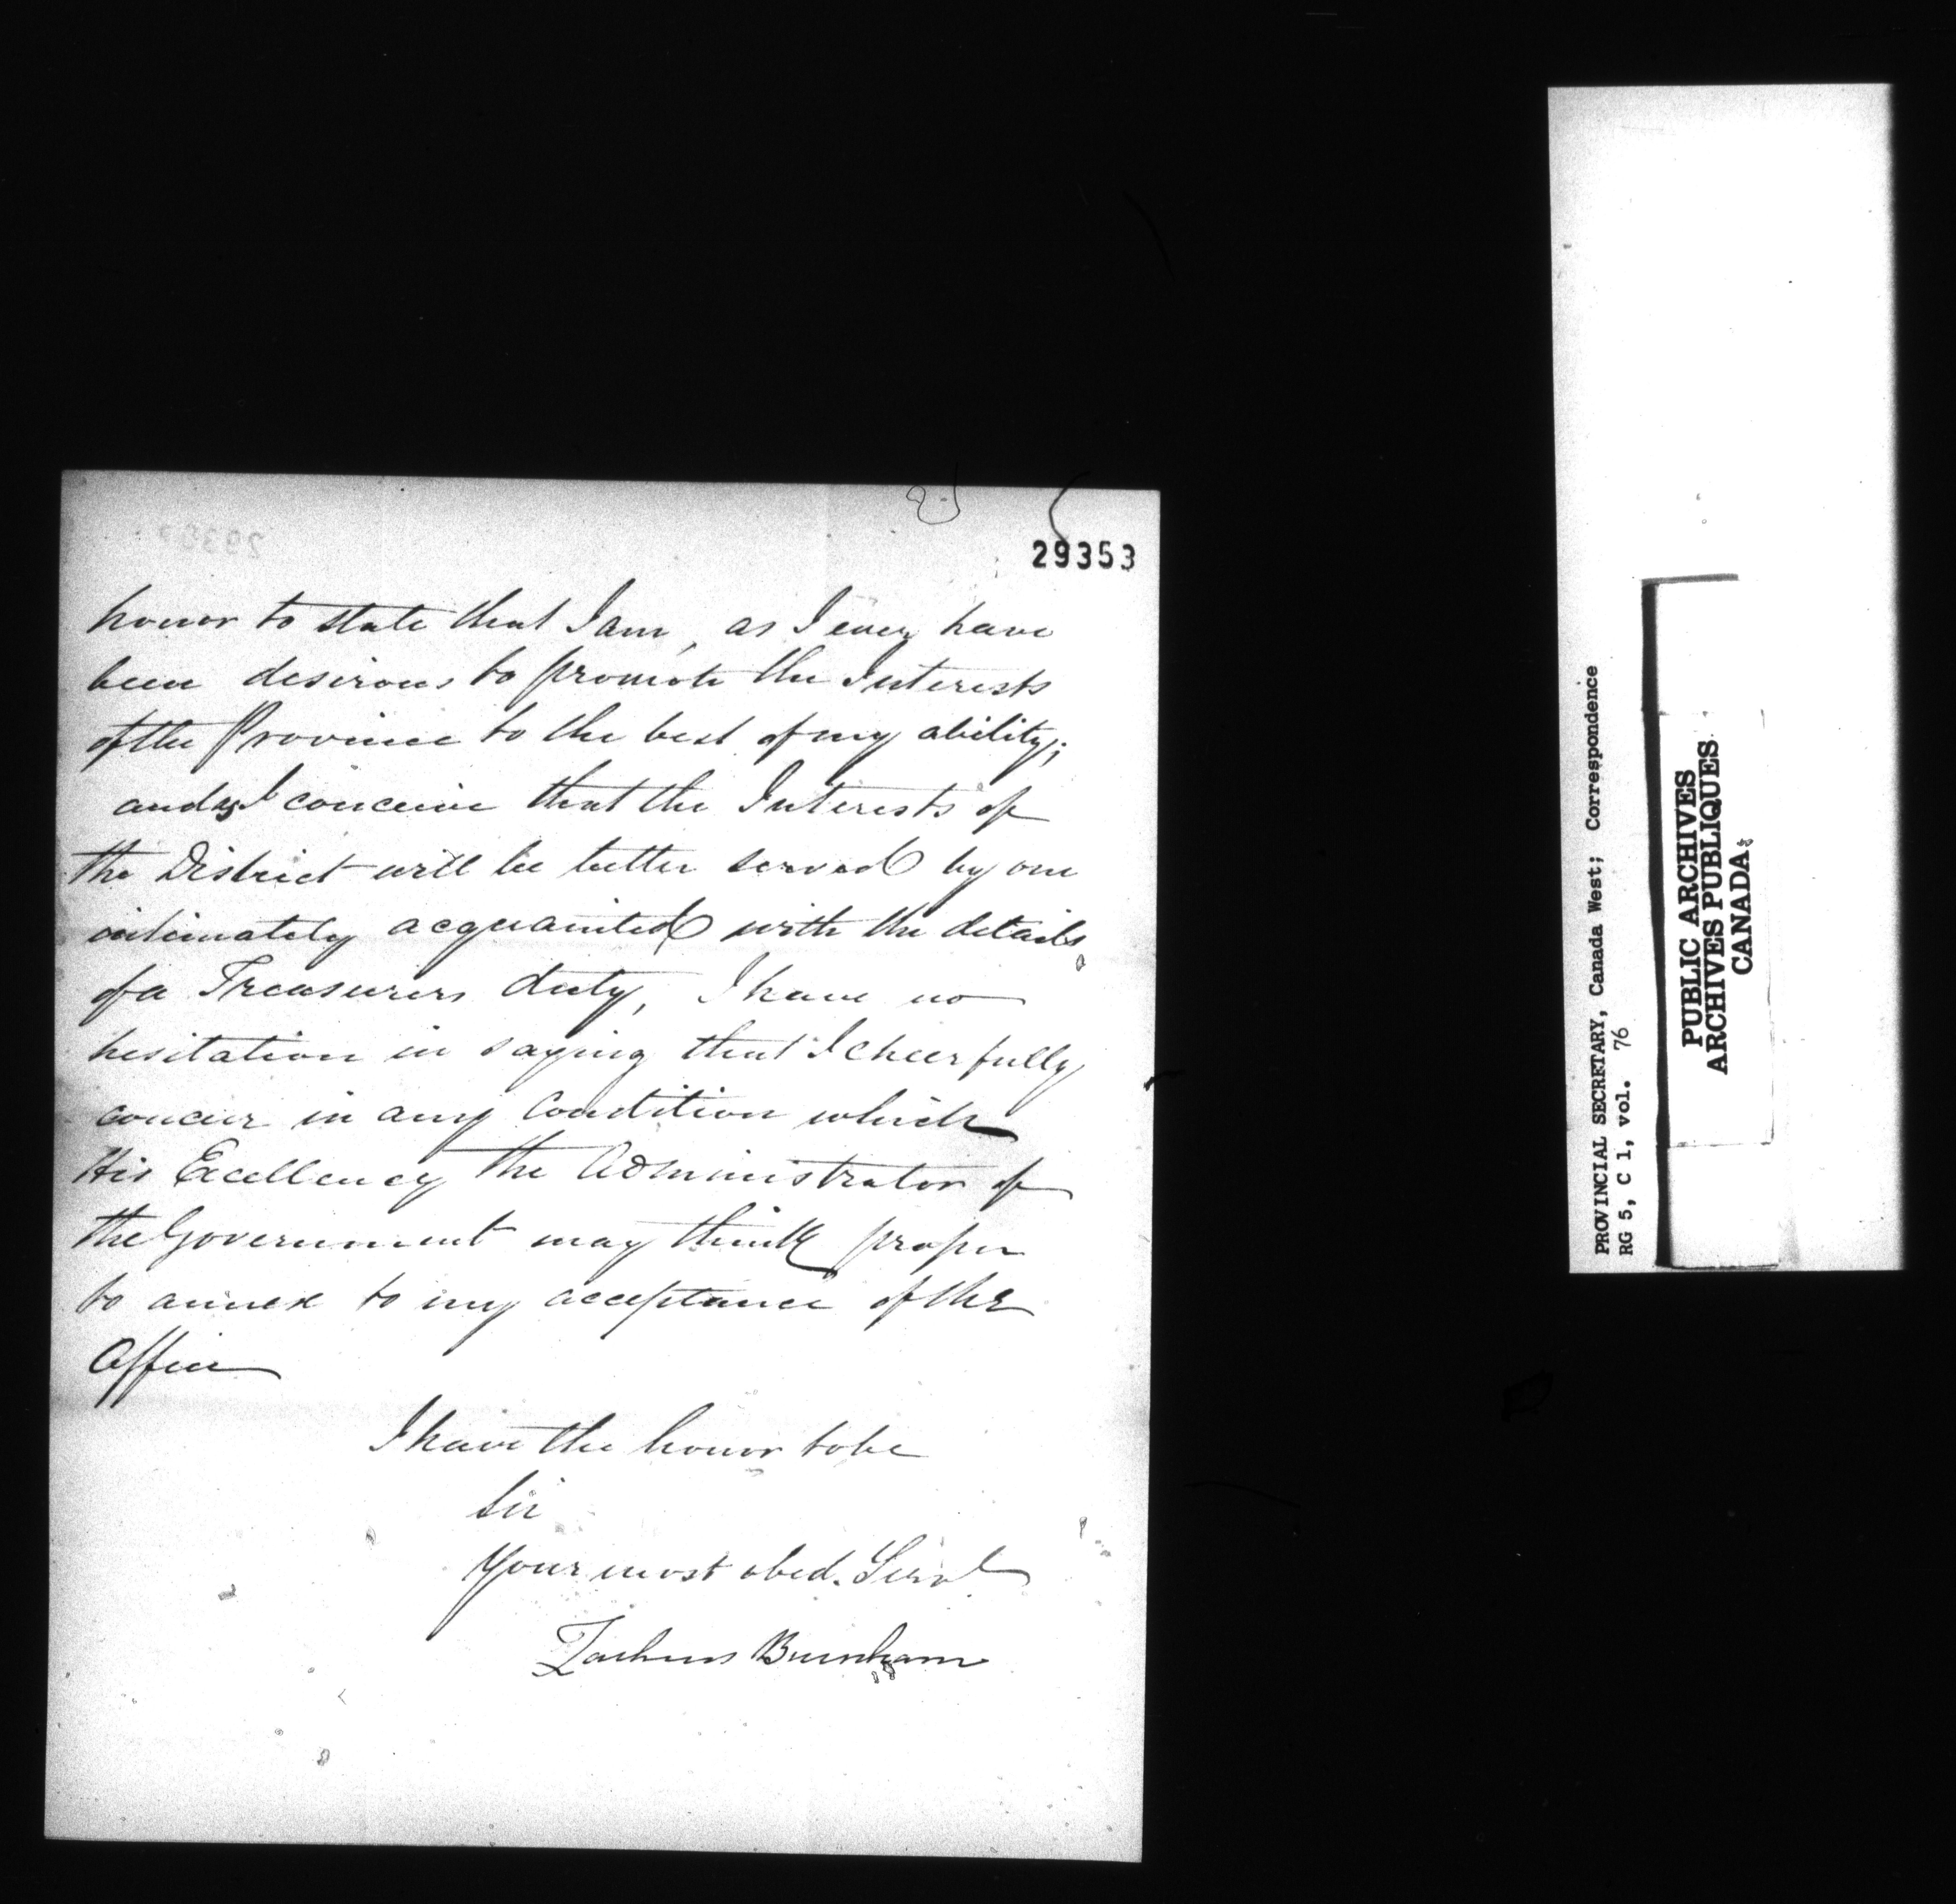 29353
honor to state that I am, as I ever have
been desirous to promote the Interests
of the Province to the best of my ability;
and as I conceive that the Interests of
the District will be better served by one
intimately acquainted with the details
of a Treasurers duty, I have no
hesitation in saying that I cheerfully
concur in any Condition which
His Excellency the Administrator of
the Government may think proper
to annex to my acceptance of the
Office
I have the honor to be
Sir
Your most obed. Servt
Zacheus Burnham
PROVINCIAL SECRETARY, Canada West; Correspondence
RG 5, C 1, vol. 76
PUBLIC ARCHIVES
ARCHIVES PUBLIQUES
CANADA